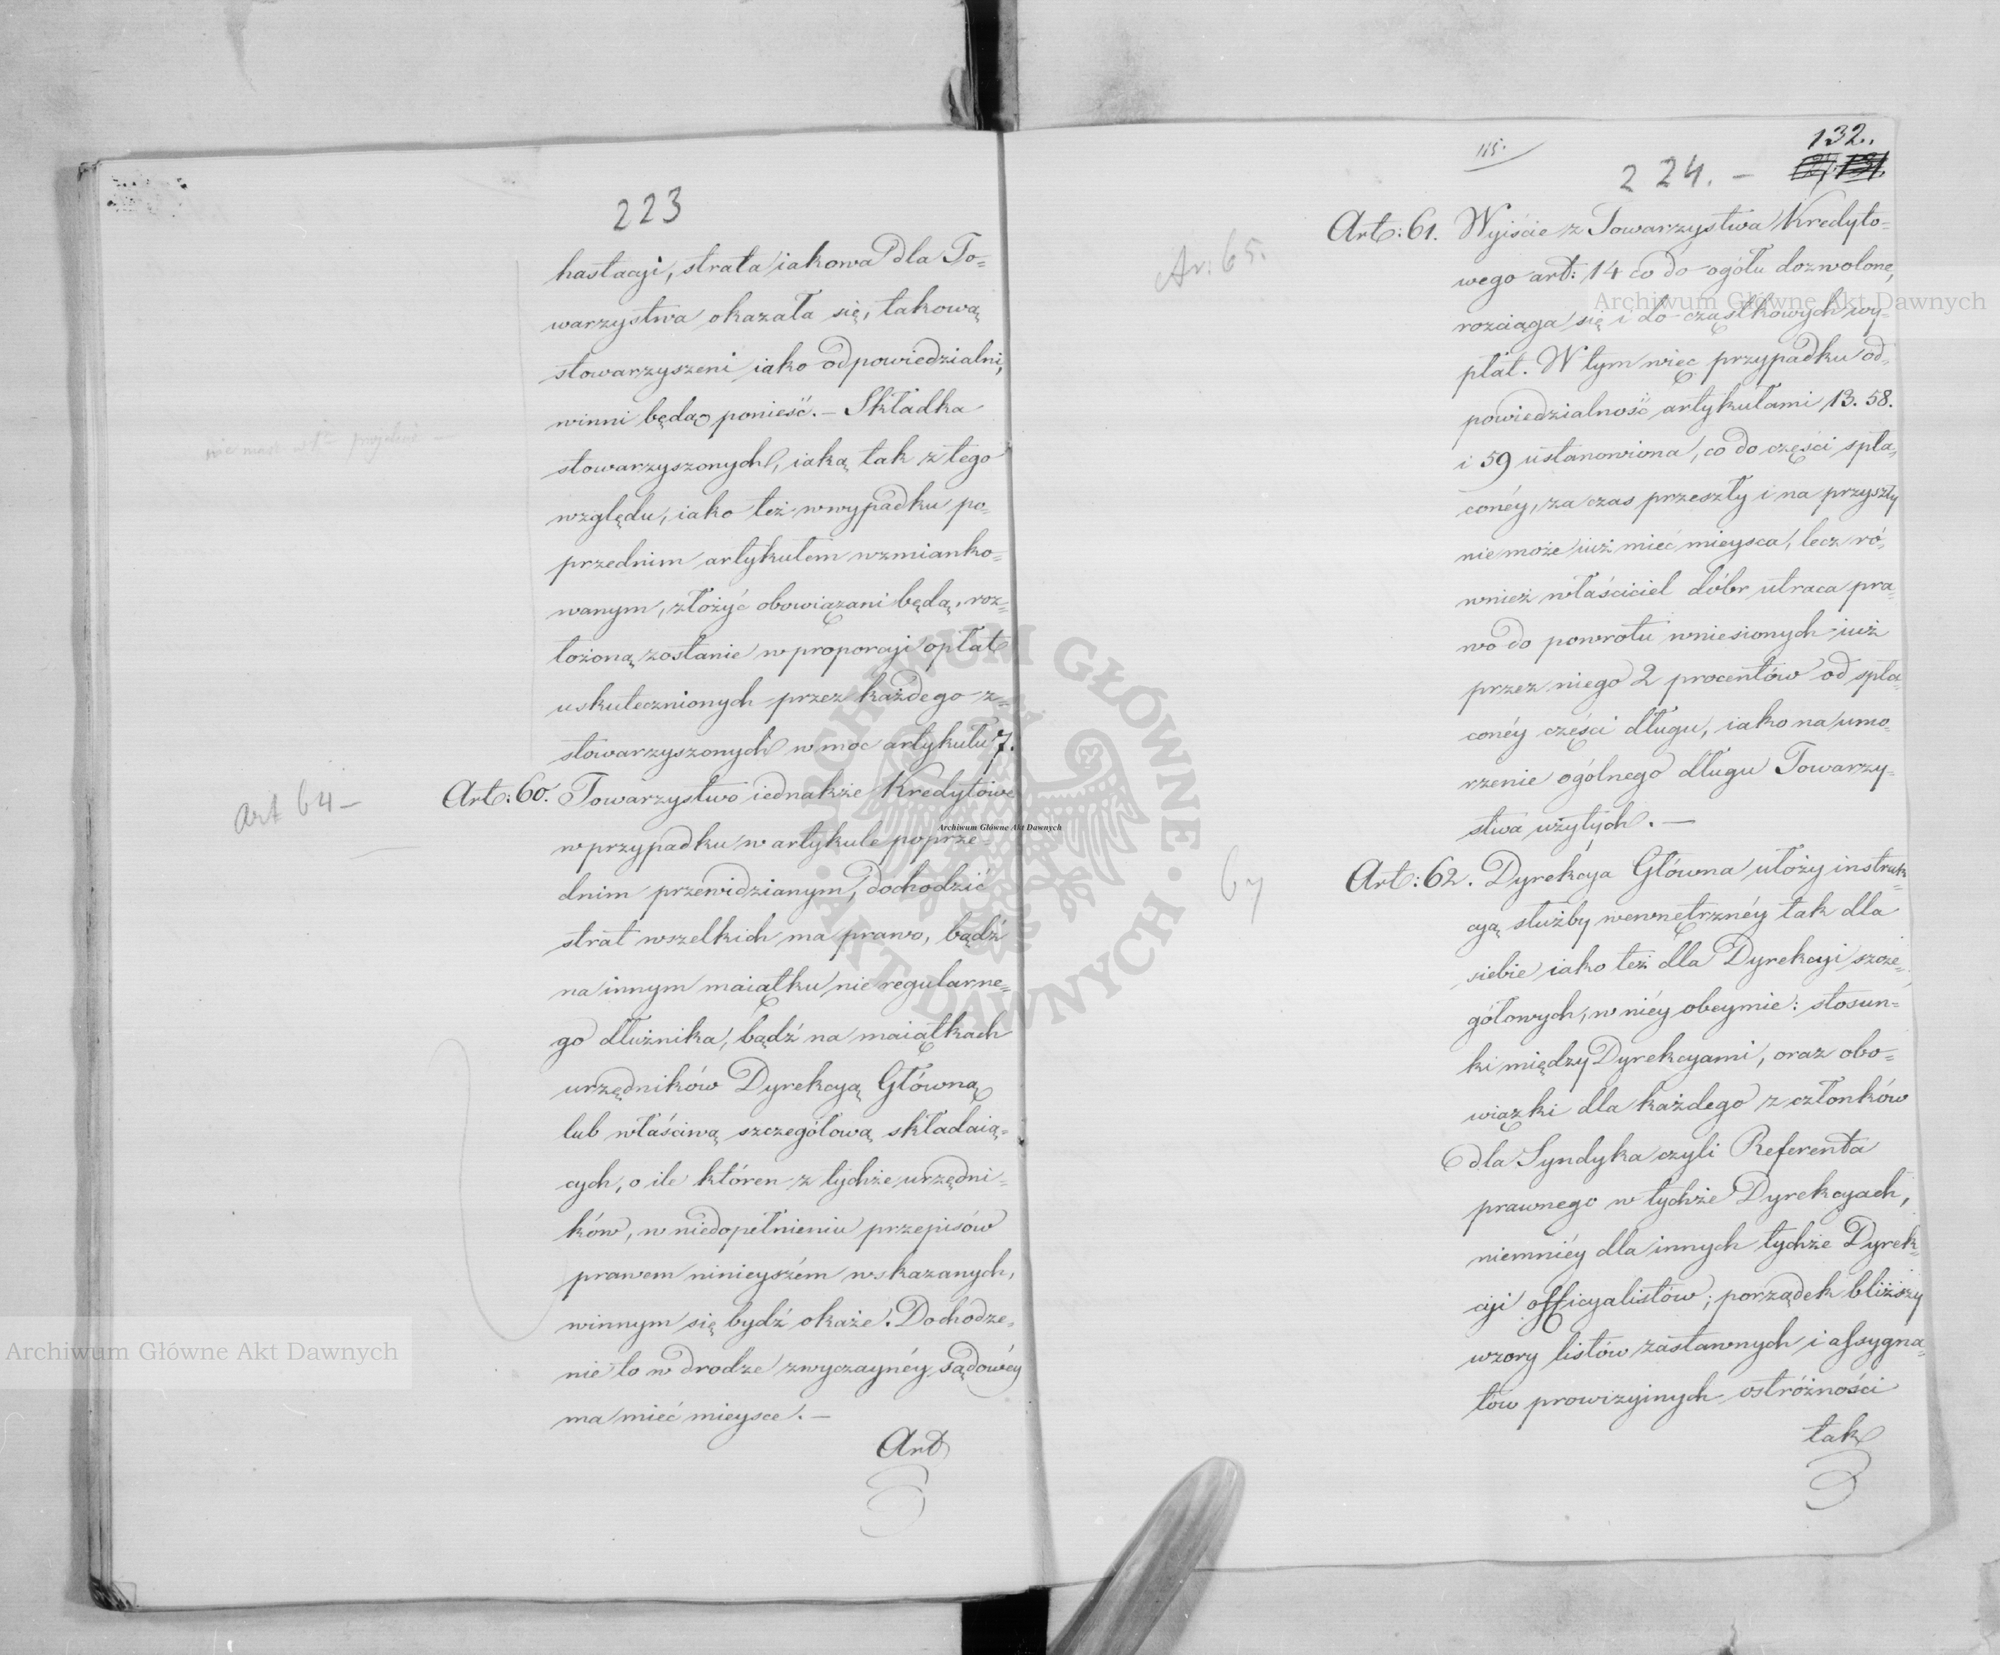 223
hastacyi, strata iakowa dla To=
warzystwa okazała się, takową
stowarzyszeni iako odpowiedzialni,
winni będą ponieść. – Składka
stowarzyszonych, iaką tak z tego
względu, iako też w wypadku po=
przednim artykułem wzmianko=
wanym, złożyć obowiązani będą, roz=
łożoną zostanie w proporcyi opłat
uskutecznionych przez każdego z=
stowarzyszonych w moc artykułu 7.
Art 64 –
Art: 60. Towarzystwo iednakże Kredytowe
w przypadku w artykule poprze=
dnim przewidzianym, dochodzić
strat wszelkich ma prawo, bądź
na innym maiątku nie regularne=
go dłużnika, bądź na maiątkach
urzędników Dyrekcyą Główną
lub właściwą szczegółową składaią=
cych, o ile któren z tychże urzędni=
ków, w niedopełnieniu przepisów
prawem ninieyszém wskazanych,
winnym się bydź okaże. Dochodze=
nie to w drodze zwyczaynéy sądowéy
ma mieć mieysce. –
Art
115.
132.
224. –
Ar: 65.
Art: 61. Wyiście z Towarzystwa Kredyto=
wego art: 14 co do ogółu dozwolone,
rozciąga się i do cząstkowych wy=
płat. W tym więc przypadku od=
powiedzialność artykułami 13. 58.
i 59 ustanowiona, co do części spła=
conéy, za czas przeszły i na przyszły
nie może iuż mieć mieysca, lecz ró=
wnież właściciel dóbr utraca pra=
wo do powrotu wniesionych iuż
przez niego 2 procentów od spła=
conéy części długu, iako na umo=
rzenie ogólnego długu Towarzy=
stwa użytych. –
Art: 62. Dyrekcya Główna ułoży instruk=
cyą służby wewnętrznéy tak dla
siebie iako też dla Dyrekcyi szcze=
gółowych, w niéy obeymie: stosun=
ki między Dyrekcyami, oraz obo=
wiązki dla każdego z członków
dla Syndyka czyli Referenta
prawnego w tychże Dyrekcyach,
niemniéy dla innych tychże Dyrek=
cyi officyalistów; porządek bliższy
wzory listów zastawnych i assygna=
tów prowizyinych ostróżności
tak
Archiwum Główne Akt Dawnych
Archiwum Główne Akt Dawnych
Archiwum Główne Akt Dawnych
ARCHIWUM GŁÓWNE · AKT DAWNYCH ·